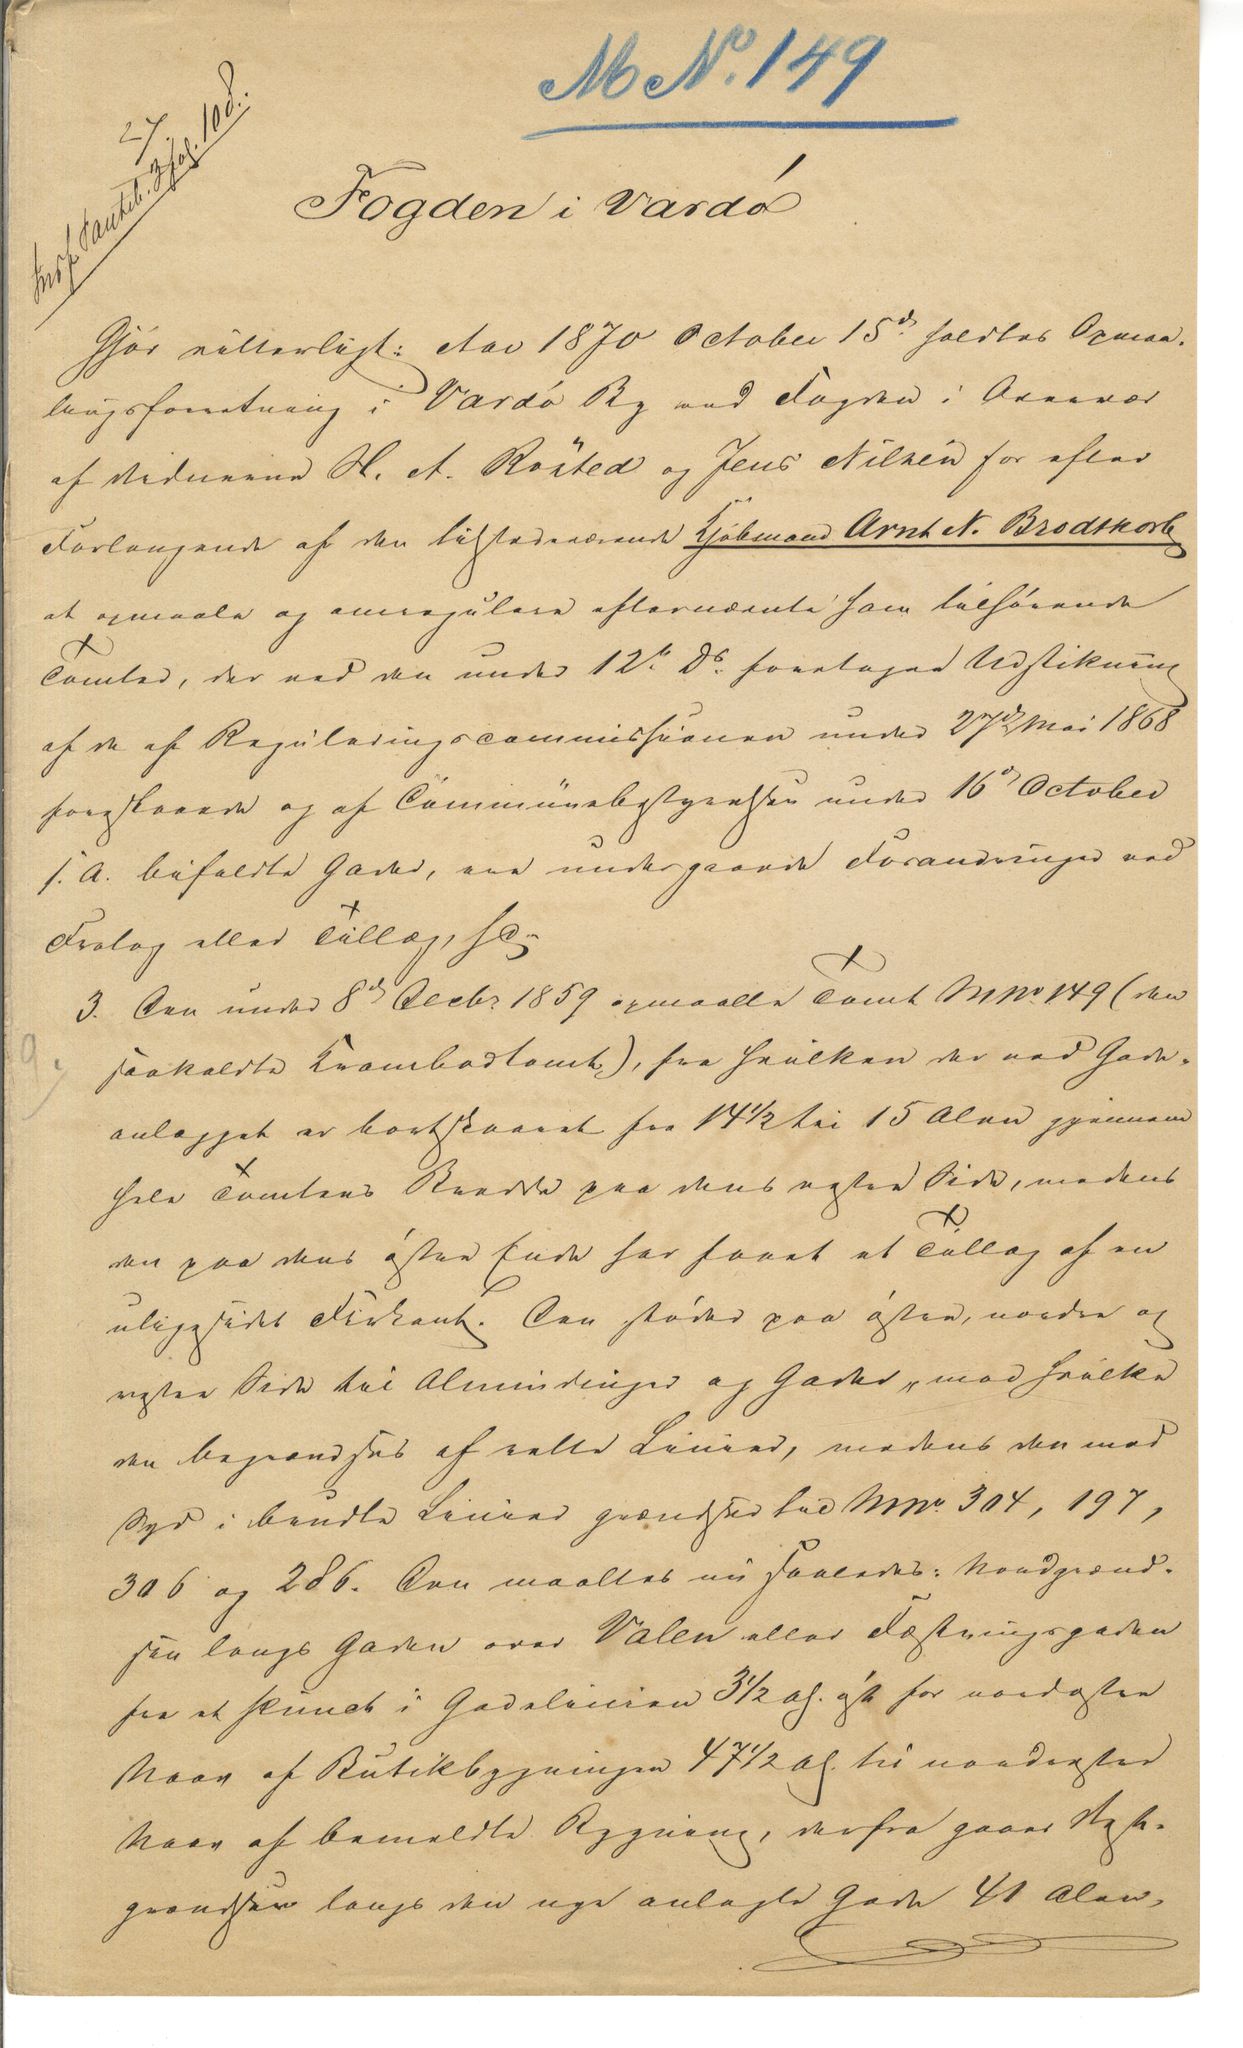 M No. 149
27.
Insf. Panteb. 3 fol. 108.
Fogden i Vardö
Gjör vitterligt: Aar 1870 October 15d holdtes Opmaa-
lingsforretning i Vardö By ved Fogden i Overvær
af Vidnerne H. A. Rösted og Jens Nilsen for efter
Forlangende af den tilstedeværende Kjöbmand Arnt N. Brodtkorb
at opmaale og omregulere efternævnte ham tilhörende
Tomter, der ved den under 12te Ds. foretagne Udstikning
af de af Reguleringscommissionen under 27de Mai 1868
foreslaaede og af Communebestyrelsen under 16d October
s. A. bifaldte Gader, ere undergaaede Forandringer ved
Fralag eller Tillæg, sc.
3. Den under 8d Decbr. 1859 opmaalte Tomt MNo. 149 (den
saakaldte Krambodtomt), fra hvilken der ved Gade-
anlægget er bortskaaret fra 14 1/2 til 15 Alen gjennem
hele Tomtens Bredde paa dens vestre Side, medens
den paa dens östre Ende har faaet et Tillæg af en
uligesidet Firkant. Den stöder paa östre, nordre og
vestre Side til Almindinger og Gader, mod hvilke
den begrændses af rette Linier, medens den mod
Syd i brudte Linier grændser til MNo. 304, 197,
306 og 286. Den maaltes nu saaledes: Nordgrænd-
sen langs Gaden over Valen eller Fæstningsgaden
fra et Punct i Gadelinien 3 1/2 Al. öst for nordöstre
Nov af Butikbygningen 47 1/2 Al. til nordvestre
Nov af bemeldte Bygning, derfra gaaer Vest-
grændsen langs den nye anlagte Gade 41 Alen,